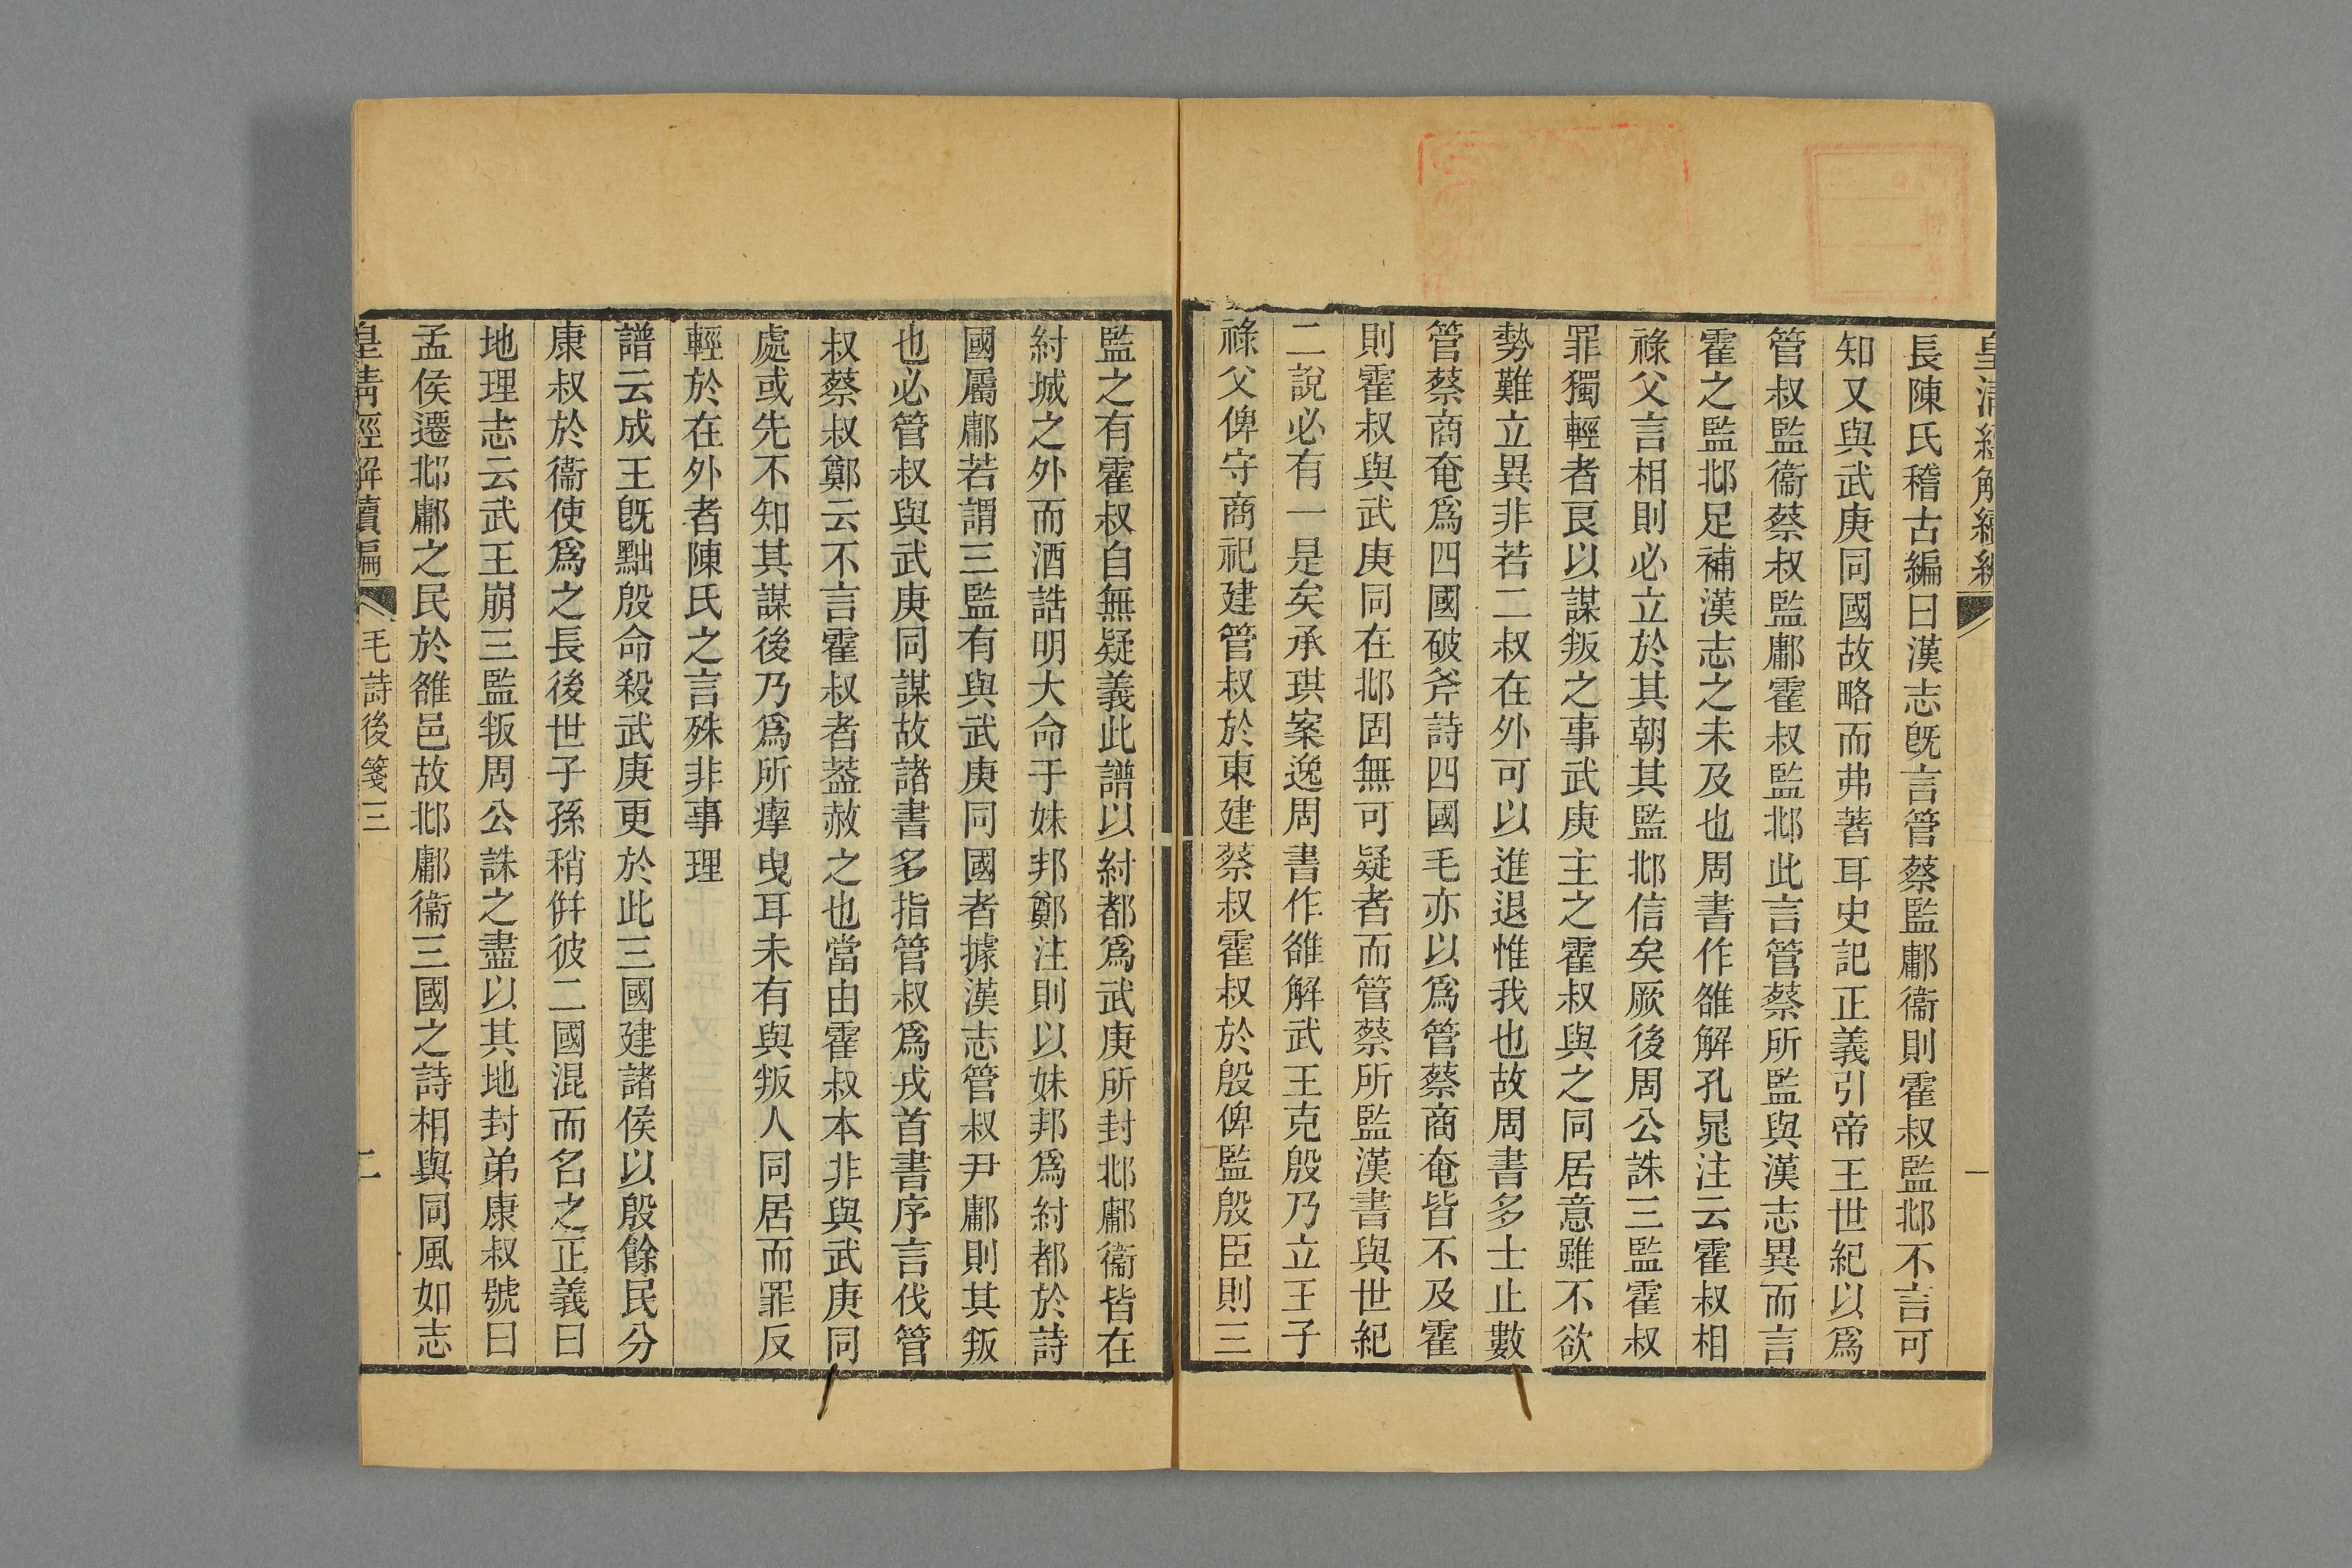 皇清經解續編
一
長陳氏稽古編曰漢志旣言管蔡監鄘衞則霍叔監邶不言可
知又與武庚同國故略而弗著耳史記正義引帝王世紀以爲
管叔監衞蔡叔監鄘霍叔監邶此言管蔡所監與漢志異而言
霍之監邶足補漢志之未及也周書作雒解孔晁注云霍叔相
祿父言相則必立於其朝其監邶信矣厥後周公誅三監霍叔
罪獨輕者良以謀叛之事武庚主之霍叔與之同居意雖不欲
勢難立異非若二叔在外可以進退惟我也故周書多士止數
管蔡商奄爲四國破斧詩四國毛亦以爲管蔡商奄皆不及霍
則霍叔與武庚同在邶固無可疑者而管蔡所監漢書與世紀
二說必有一是矣承珙案逸周書作雒解武王克殷乃立王子
祿父俾守商祀建管叔於東建蔡叔霍叔於殷俾監殷臣則三
監之有霍叔自無疑義此譜以紂都爲武庚所封邶鄘衞皆在
紂城之外而酒誥明大命于妹邦鄭注則以妹邦爲紂都於詩
國屬鄘若謂三監有與武庚同國者據漢志管叔尹鄘則其叛
也必管叔與武庚同謀故諸書多指管叔爲戎首書序言伐管
叔蔡叔鄭云不言霍叔者葢赦之也當由霍叔本非與武庚同
處或先不知其謀後乃爲所瘴曳耳未有與叛人同居而罪反
輕於在外者陳氏之言殊非事理
譜云成王旣黜殷命殺武庚更於此三國建諸侯以殷餘民分
康叔於衞使爲之長後世子孫稍倂彼二國混而名之正義曰
地理志云武王崩三監叛周公誅之盡以其地封弟康叔號曰
孟侯遷邶鄘之民於雒邑故邶鄘衞三國之詩相與同風如志
皇清經解續編
毛詩後箋三
二